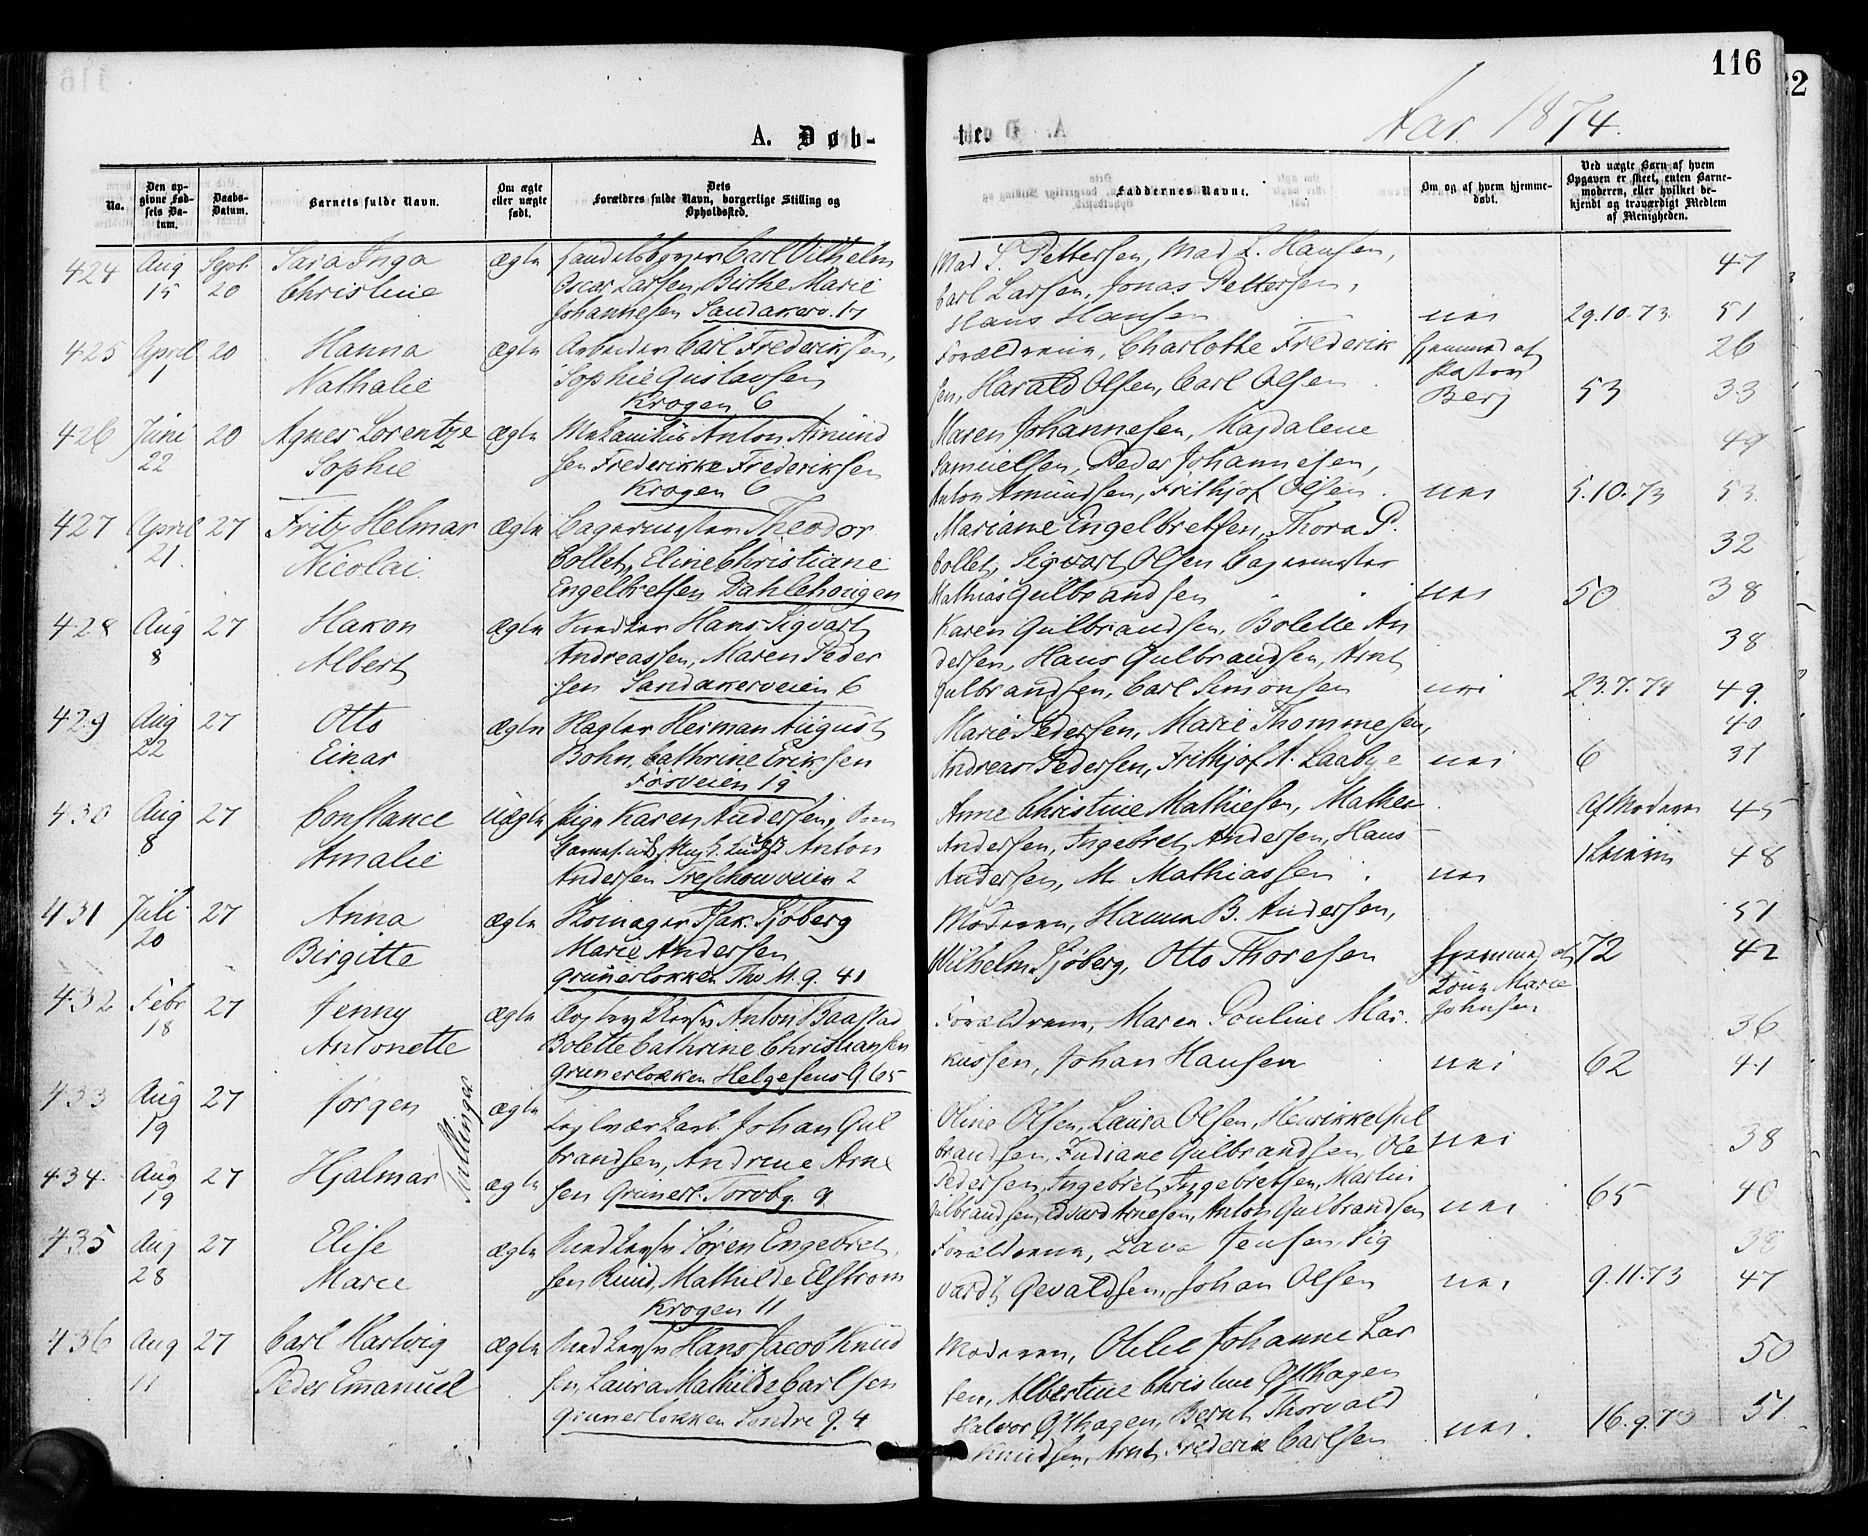 116
22
A. Døb-
te.
Aar 1874.
No.
Den opgivne Fødsels Datum.
Daabs-Datum.
Barnets fulde Navn.
Om ægte eller uægte født.
Forældres fulde Navn, borgerlige Stilling og Dets Opholdssted.
Faddernes Navne.
Om og af hvem hjemmedøbt.
Ved uægte Børn af hvem Opgaven er skeet, enten Barnemoderen, eller hvilket bekjendt og troværdigt Medlem af Menigheden.
424 Aug 15 Sept 20 Sara Inga Christine ægte
Handelsbetjen Carl Vilhelm
Oscar Larsen, Birthe Marie
Johannesen Sandakerv. 17
Mad S. Pettersen, Mad L. Hansen,
Carl Larsen, Jonas Pettersen,
Hans Hansen nei 29.10.73 47 51
425 April 1 20 Hanna Nathalie ægte
Arbeider Carl Frederiksen,
Sophie Gustavsen
Krogen 6
Forældrene, Charlotte Frederik
sen, Harald Olsen, Carl Olsen
hjemmed af Pastor Berg 53 26 33
426 Juni 22 20 Agnes Lorentze Sophie ægte
Mekanikus Anton Amund
sen Frederikke Frederiksen
Krogen 6
Maren Johannesen, Magdalene
Samuelsen, Peder Johannesen,
Anton Amundsen, Frithjof Olsen nei 5.10.73 49 53
427 April 21 27 Fritz Helmar Nicolai ægte
Bagermester Theodor
Bollet, Eline Christiane
Engelbretsen Dahlehougen
Mariane Engelbretsen, Thora P.
Bollet, Sigvart Olsen Bagermester
Mathias Gulbrandsen nei 50 32 38
428 Aug 8 27 Hakon Albert ægte
Snedker Hans Sigvart
Andreassen, Maren Peder
sen Sandakerveien 6
Karen Gulbrandsen, Bolette An
dersen, Hans Gulbrandsen, Arnt
Gulbrandsen, Carl Simonsen nei 23.7.74 38 49
429 Aug 22 27 Otto Einar ægte
Herman August
Bohn, Cathrine Eriksen
Fosveien 19
Marie Pedersen, Marie Thommesen,
Andreas Pedersen, Frithjof A. Laabye nei 6 40 31
430 Aug 8 27 Constance Amalie uægte
Pige Karen Andersen,
Anton
Andersen Treschowveien 2
Anne Christine Mathiesen, Mathea
Andersen, Ingebret Andersen, Hans
Andersen, M. Mathiassen nei
Af Moderen 45 48
431 Juli 20 27 Anna Birgitte ægte
Skomager Isak Sjöberg
Marie Andersen
Grünerløkken Tho M. g. 41
Moderen, Hanna B. Andersen,
Wilhelm Sjöberg, Otto Thoresen
hjemmed af Marie Johnsen 72 51 42
432 Febr 18 27 Jenny Antonette ægte
Anton Baastad
Bolette Cathrine Christiansen
Grünerløkken Helgesens G. 65
Forældrene, Maren Pouline Mar
kussen, Johan Hansen nei 62 36 41
433 Aug 19 27 Jørgen Tvillinger ægte
Teglværksarb. Johan Gul
brandsen, Andrine Arne
sen Grünerl. Torvbg. 9
Oline Olsen, Laura Olsen, Henrikke Gul
brandsen, Indiane Gulbrandsen, Ole nei 38
434 Aug 19 27 Hjalmar ægte
Pedersen, Ingebret Ingebretsen, Martin
Gulbrandsen, Edvard Arnesen, Anton Gulbrandsen nei 65 40
435 Aug 28 27 Elise Marie ægte
Snedkersv Søren Engebret
sen Ruud, Mathilde Elstrom
Krogen 11
Forældrene, Lava Jensen, Sig
vardt Gevaldsen, Johan Olsen nei 9.11.73 38 47
436 Aug 11 27 Carl Hartvig Peder Emanuel ægte
Snedkersv Hans Jacob Knud
sen, Laura Mathilde Carlsen
Grunerløkken Søndre G. 4
Moderen, Johanne Lar
sen, Albertine Christine Ofthagen
Halvor Ofthagen, Bernt Thorvald
Knudsen, Arnt Frederik Carlsen nei 16.9.73 50 51